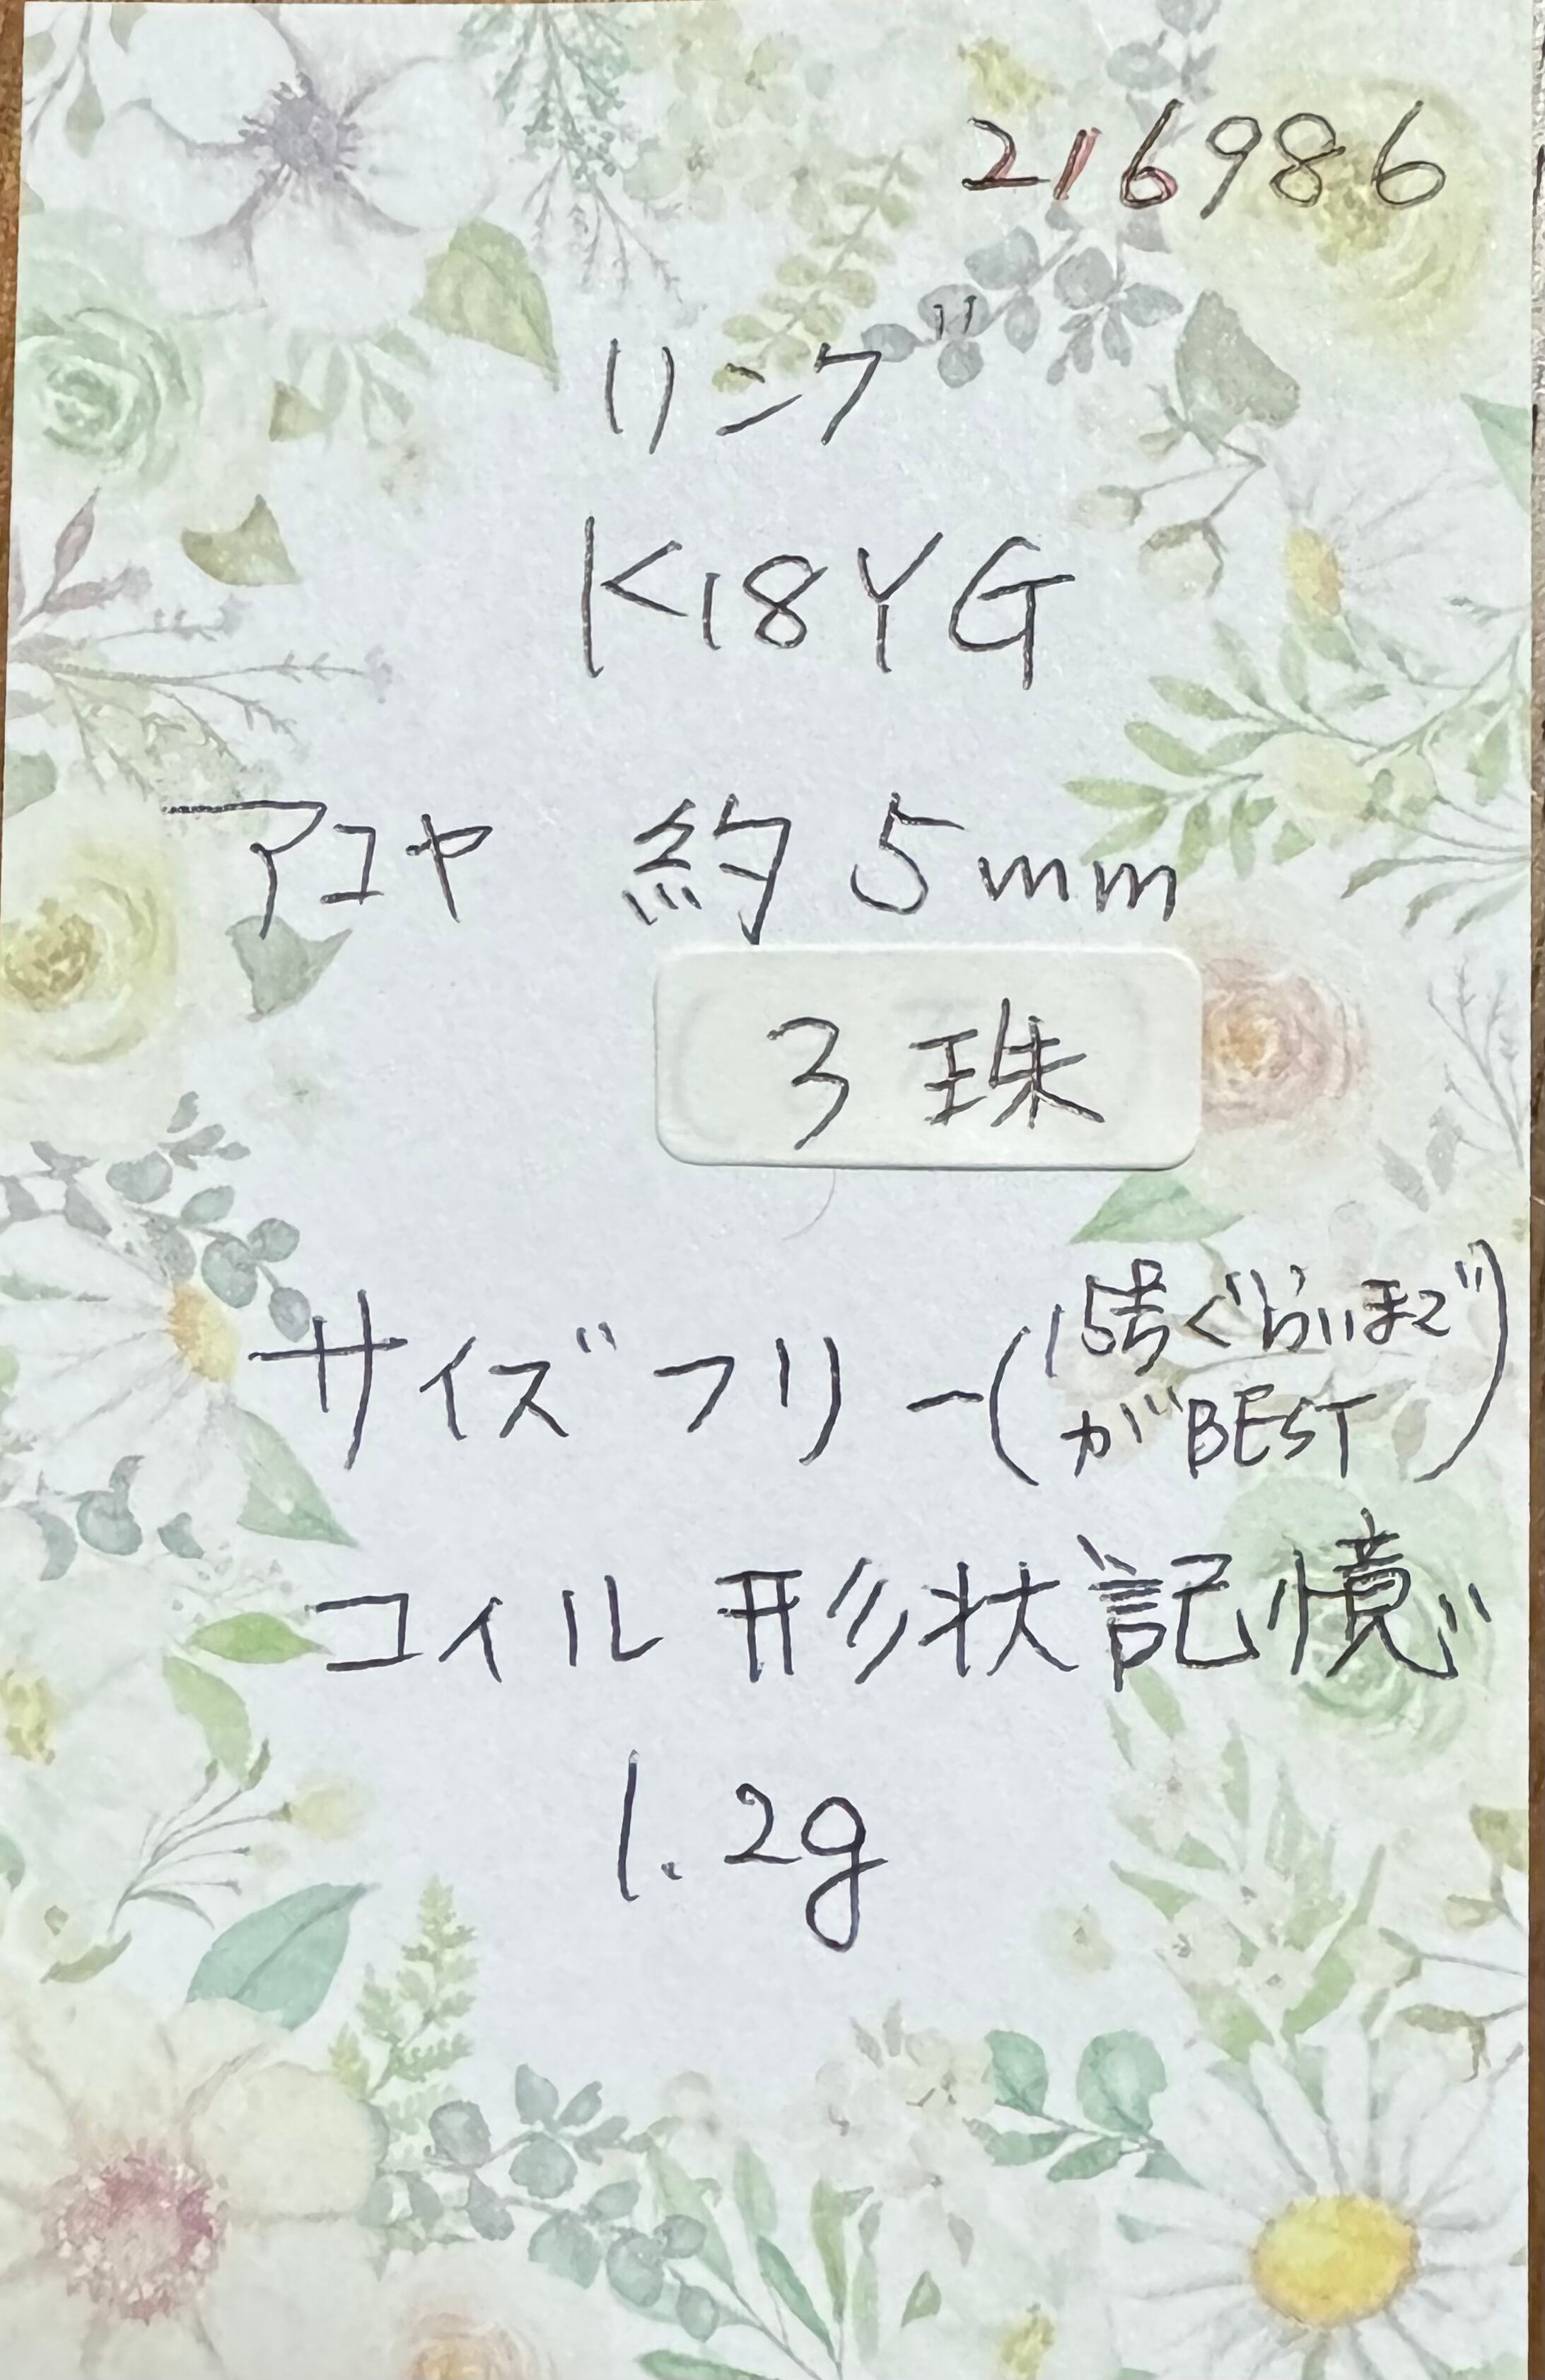 216986
リング
K18YG
アコヤ 約5mm
3珠
サイズフリー(15号ぐらいまで
がBEST)
コイル形状記憶
1.2g